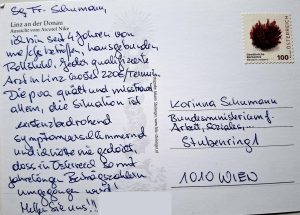 Sg Fr. Schumann,
Linz an der Donau
Ansicht vom Aicutel Nike
ich bin seit 4 Jahren von
me/cfs betroffen, hausgebunden
Rollstuhl. Jeder qualifizierte
Arzt in Linz kostet 220€/Termin.
Die pva quält und misstraut
allem, die Situation ist
existenzbedrohend
symptomverschlimmernd
und ich hätte nie gedacht,
dass in Österreich so mit
jahrelangen Beitragszahlern
umgegangen wird!
Helfen Sie uns!!!
ÖSTERREICH
100
Korinna Schumann
Bundesministerium f.
Arbeit, Soziales,
Stubenring 1
1010 WIEN